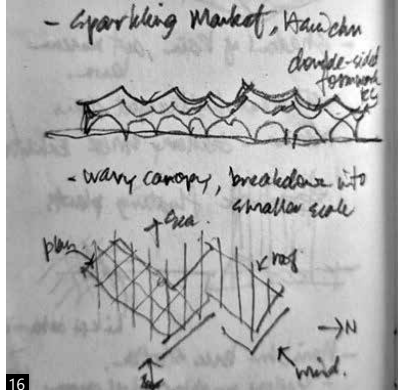 - Sparkling Market,
double-side
formwork
- wavy canopy, breakdown into
smaller scale
Sea.
plan
roof
→N
wind.
16